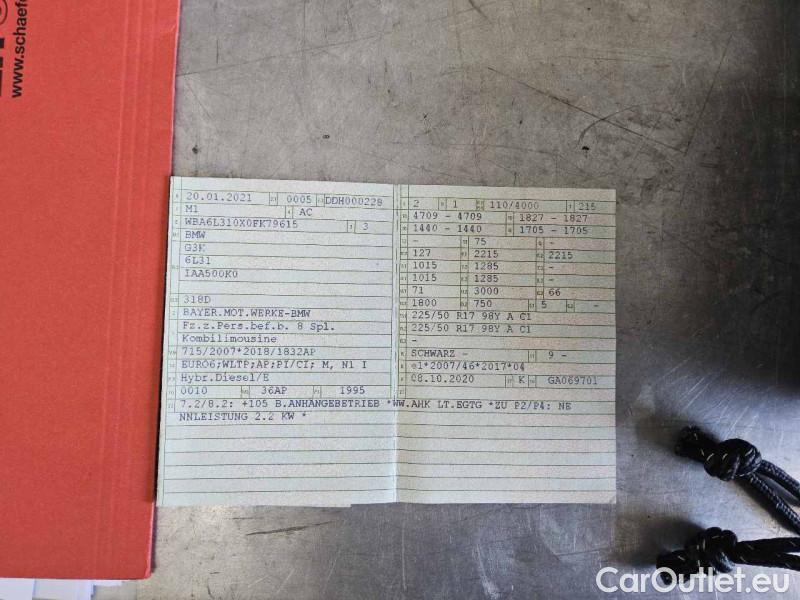 www.schaef
20.01.2021 0005 DDH000228
M1 AC
WBA6L310X0FK79615 3
BMW
G3K
6L31
IAA500K0
318D
BAYER.MOT.WERKE-BMW
Fz.z.Pers.bef.b. 8 Spl.
Kombilimousine
715/2007*2018/1832AP
EURO6;WLTP;AP;PI/CI; M, N1 I
Hybr.Diesel/E
0010 36AP 1995
7.2/8.2: +105 B.ANHÄNGEBETRIEB *WW.AHK LT.EGTG *ZU P2/P4: NE
NNLEISTUNG 2.2 KW *
2 1 110/4000 215
4709 - 4709 1827 - 1827
1440 - 1440 1705 - 1705
- 75 -
127 2215 2215
1015 1285 -
1015 1285 -
71 3000 66
1800 750 5 -
225/50 R17 98Y A C1
225/50 R17 98Y A C1
-
SCHWARZ - 9 -
e1*2007/46*2017*04
08.10.2020 K GA069701
CarOutlet.eu